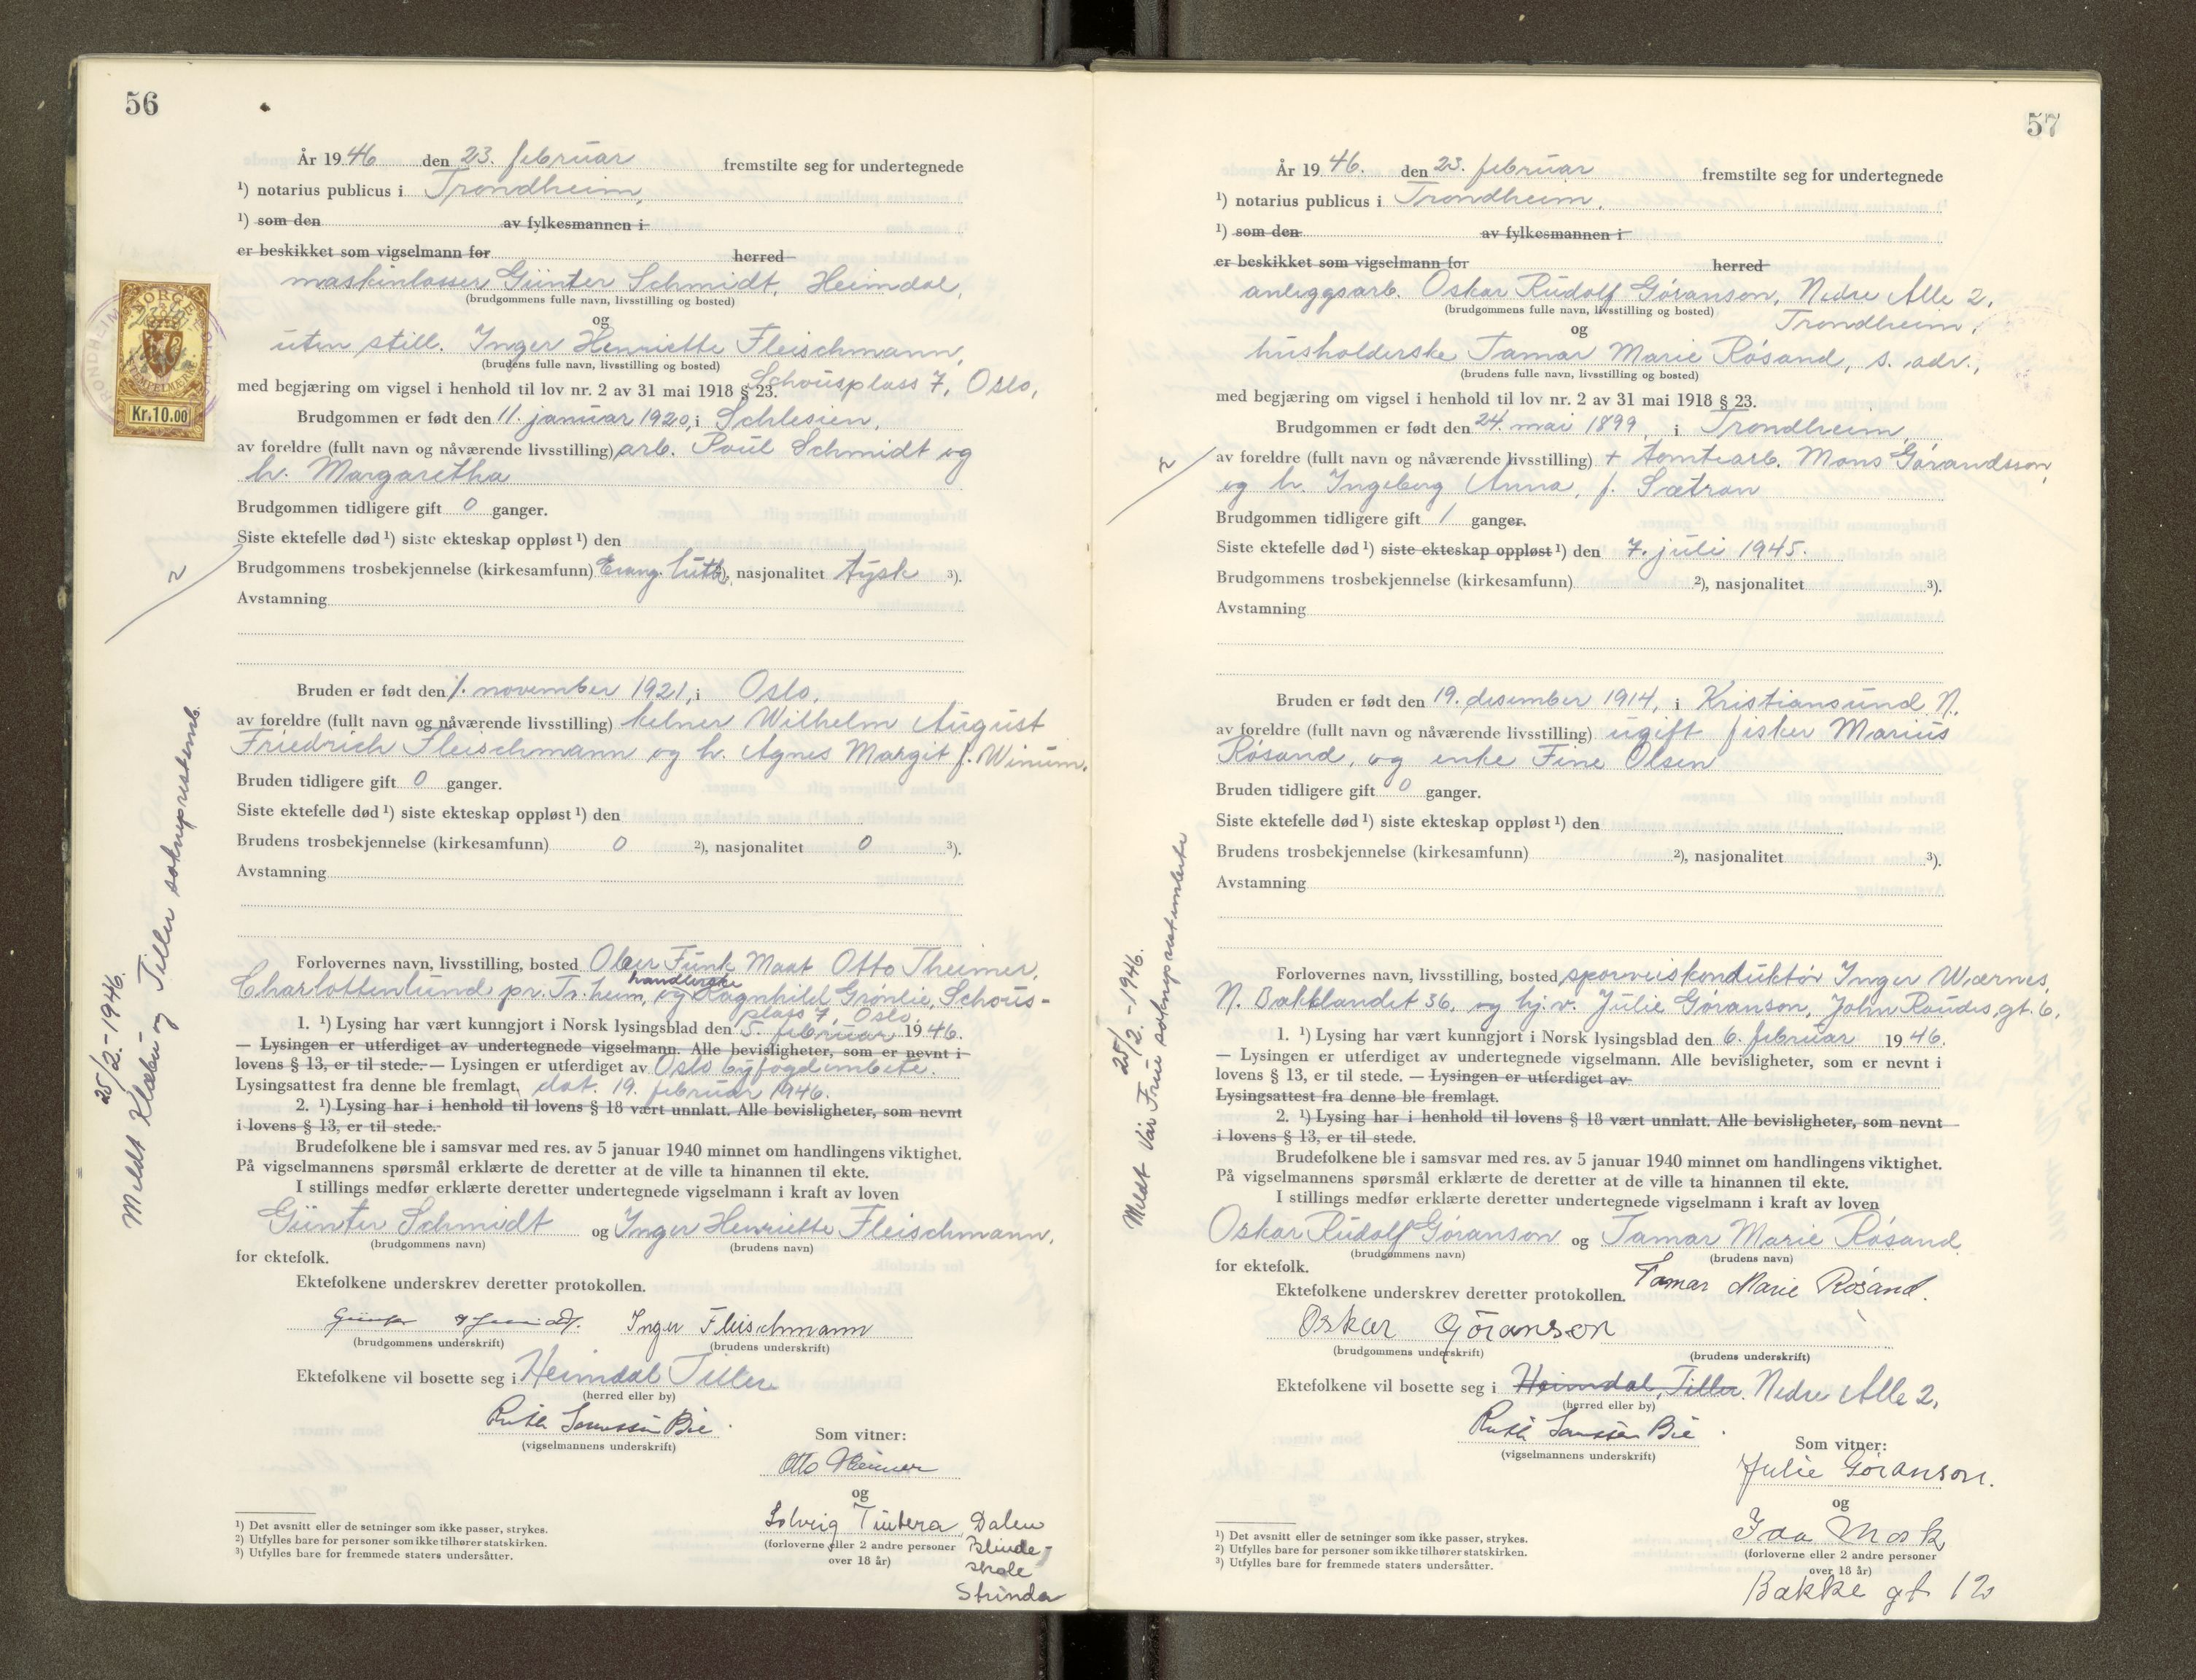 56
År 1946 den 23. februar fremstilte seg for undertegnede
¹) notarius publicus i Trondheim,
¹) som den av fylkesmannen i
er beskikket som vigselmann for herred
maskinlasser Günter Schmidt, Heimdal,
(brudgommens fulle navn, livsstilling og bosted)
og
uten still. Inger Henriette Fleischmann,
(brudens fulle navn, livsstilling og bosted)
Schousplass 7, Oslo,
med begjæring om vigsel i henhold til lov nr. 2 av 31 mai 1918 § 23.
Brudgommen er født den 11. januar 1920, i Schlesien,
av foreldre (fullt navn og nåværende livsstilling) arb. Paul Schmidt og
h. Margaretha
Brudgommen tidligere gift 0 ganger.
Siste ektefelle død ¹) siste ekteskap oppløst ¹) den
Brudgommens trosbekjennelse (kirkesamfunn) Evang. luth. ²), nasjonalitet tysk ³).
Avstamning
Bruden er født den 1. november 1921, i Oslo,
av foreldre (fullt navn og nåværende livsstilling) kelner Wilhelm August
Friedrich Fleischmann og h. Agnes Margit f. Winum.
Bruden tidligere gift 0 ganger.
Siste ektefelle død ¹) siste ekteskap oppløst ¹) den
Brudens trosbekjennelse (kirkesamfunn) 0 ²), nasjonalitet 0 ³).
Avstamning
Forlovernes navn, livsstilling, bosted Ober Funk Maat Otto Theimer,
Charlottenlund pr. Tr.heim, og handlerske Ragnhild Grønlie, Schous-
plass 7, Oslo,
1. ¹) Lysing har vært kunngjort i Norsk lysingsblad den 5. februar 1946.
— Lysingen er utferdiget av undertegnede vigselmann. Alle bevisligheter, som er nevnt i
lovens § 13, er til stede. — Lysingen er utferdiget av Oslo byfogdembete.
Lysingsattest fra denne ble fremlagt, dat. 19. februar 1946.
2. ¹) Lysing har i henhold til lovens § 18 vært unnlatt. Alle bevisligheter, som nevnt
i lovens § 13, er til stede.
Brudefolkene ble i samsvar med res. av 5 januar 1940 minnet om handlingens viktighet.
På vigselmannens spørsmål erklærte de deretter at de ville ta hinannen til ekte.
I stillings medfør erklærte deretter undertegnede vigselmann i kraft av loven
Günter Schmidt og Inger Henriette Fleischmann,
(brudgommens navn) (brudens navn)
for ektefolk.
Ektefolkene underskrev deretter protokollen.
Günter Schmidt. Inger Fleischmann
(brudgommens underskrift) (brudens underskrift)
Ektefolkene vil bosette seg i Heimdal Tiller
(herred eller by)
Ruth Bie
(vigselmannens underskrift)
Som vitner:
Otto Theimer
og
Solveig Dalen
(forloverne eller 2 andre personer
over 18 år)
Blinde-
skole
Strinda
¹) Det avsnitt eller de setninger som ikke passer, strykes.
²) Utfylles bare for personer som ikke tilhører statskirken.
³) Utfylles bare for fremmede staters undersåtter.
NORGE
STEMPELMERKE
Kr.10.00
2
25/2.-1946.
Meldt Klæbu og Tiller sokneprestemb.
57
År 1946. den 23. februar fremstilte seg for undertegnede
¹) notarius publicus i Trondheim,
¹) som den av fylkesmannen i
er beskikket som vigselmann for herred
anleggsarb. Oskar Rudolf Göranson, Nedre Alle 2,
(brudgommens fulle navn, livsstilling og bosted)
Trondheim,
og
husholderske Tamar Marie Røsand, s. adr.,
(brudens fulle navn, livsstilling og bosted)
med begjæring om vigsel i henhold til lov nr. 2 av 31 mai 1918 § 23.
Brudgommen er født den 24. mai 1899, i Trondheim,
av foreldre (fullt navn og nåværende livsstilling) + tomtearb. Mons Görandsson,
og h. Ingeborg Anna, f. Sætran
Brudgommen tidligere gift 1 ganger.
Siste ektefelle død ¹) siste ekteskap oppløst ¹) den 7. juli 1945.
Brudgommens trosbekjennelse (kirkesamfunn) ²), nasjonalitet ³).
Avstamning
Bruden er født den 19. desember 1914, i Kristiansund N.,
av foreldre (fullt navn og nåværende livsstilling) ugift fisker Marius
Røsand, og enke Fine Olsen
Bruden tidligere gift 0 ganger.
Siste ektefelle død ¹) siste ekteskap oppløst ¹) den
Brudens trosbekjennelse (kirkesamfunn) ²), nasjonalitet ³).
Avstamning
Forlovernes navn, livsstilling, bosted sporveiskonduktør Inger Wærnes,
N. Bakklandet 36, og hj.v. Julie Göranson, John Raudes gt. 6,
1. ¹) Lysing har vært kunngjort i Norsk lysingsblad den 6. februar 1946.
— Lysingen er utferdiget av undertegnede vigselmann. Alle bevisligheter, som er nevnt i
lovens § 13, er til stede. — Lysingen er utferdiget av
Lysingsattest fra denne ble fremlagt.
2. ¹) Lysing har i henhold til lovens § 18 vært unnlatt. Alle bevisligheter, som nevnt
i lovens § 13, er til stede.
Brudefolkene ble i samsvar med res. av 5 januar 1940 minnet om handlingens viktighet.
På vigselmannens spørsmål erklærte de deretter at de ville ta hinannen til ekte.
I stillings medfør erklærte deretter undertegnede vigselmann i kraft av loven
Oskar Rudolf Göranson og Tamar Marie Røsand
(brudgommens navn) (brudens navn)
for ektefolk.
Ektefolkene underskrev deretter protokollen.
Tamar Marie Røsand.
Oskar Göranson
(brudgommens underskrift) (brudens underskrift)
Ektefolkene vil bosette seg i Heimdal, Tiller. Nedre Alle 2,
(herred eller by)
Ruth Bie
(vigselmannens underskrift)
Som vitner:
Julie Göranson.
og
Ida Mosk
(forloverne eller 2 andre personer
over 18 år)
Bakke gt 12
¹) Det avsnitt eller de setninger som ikke passer, strykes.
²) Utfylles bare for personer som ikke tilhører statskirken.
³) Utfylles bare for fremmede staters undersåtter.
2
25/2.-1946.
Meldt Vår Frue sokneprestembete